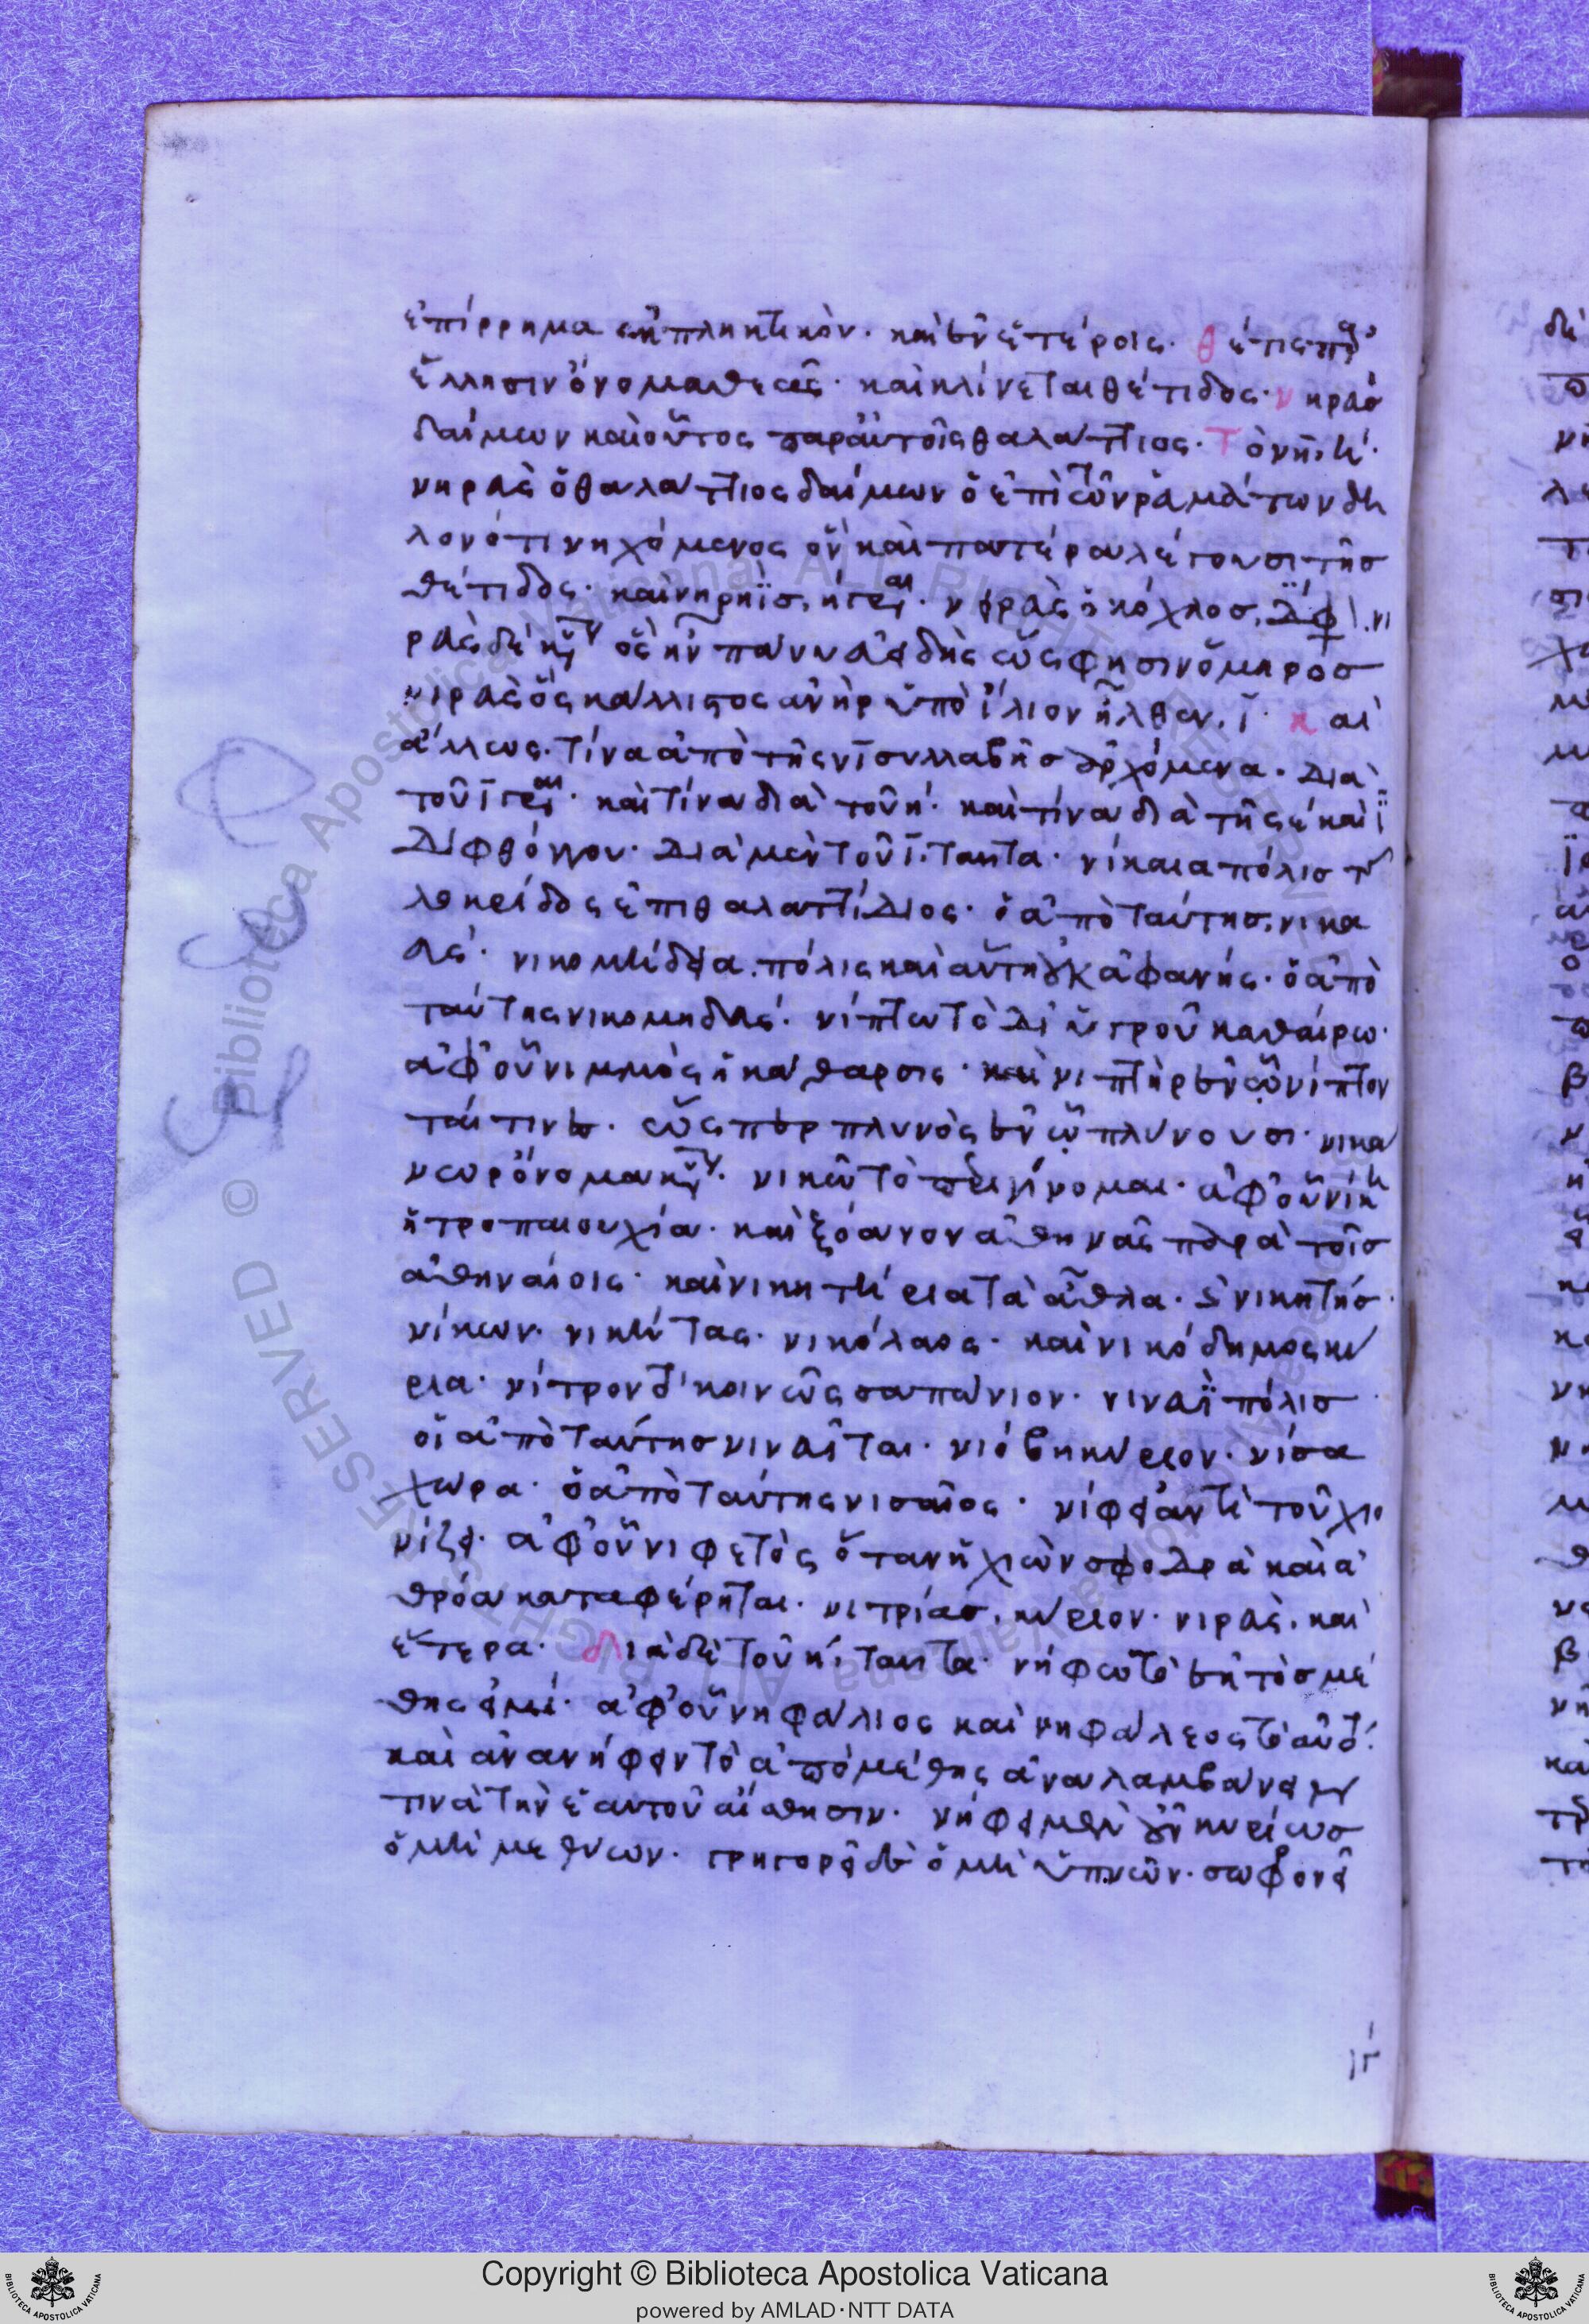 ἐπίρρημα ἐκπληκτικόν. καὶ ἐν ἑτέροις. θέτις παρ
ἕλλησιν ὀνομασθεῖσα. καὶ κλίνεται θέτιδος. νηρεὺς
δαίμων καὶ οὗτος παρ' αὐτοῖς θαλάττιος. τὸ νη, η.
νηρεὺς ὁ θαλάττιος δαίμων ὁ ἐπὶ τῶν ῥευμάτων δη
λονότι νηχόμενος ὃν καὶ πατέρα λέγουσι τῆς
θέτιδος. καὶ νηρηῒς, η γράφεται. νηρεὺς ὁ κόχλος, δίφ. νι
ρεὺς δὲ κύριον ὃς ἦν πάνυ ἀειδὴς ὥς φησιν ὅμηρος
νιρεὺς ὃς κάλλιστος ἀνὴρ ὑπὸ ἴλιον ἦλθεν, ι. καὶ
ἄλλως. τίνα ἀπὸ τῆς νι συλλαβῆς ἀρχόμενα. διὰ
τοῦ ι γράφεται. καὶ τίνα διὰ τοῦ η. καὶ τίνα διὰ τῆς ε καὶ ι
διφθόγγου. διὰ μὲν τοῦ ι, ταῦτα. νίκαια πόλις
ἐπιθαλαττίδιος. ὁ ἀπὸ ταύτης, νικα
εύς. νικομήδεια, πόλις καὶ αὕτη οὐκ ἀφανής. ὁ ἀπὸ
ταύτης νικομηδεύς. νίπτω τὸ δι' ὑγροῦ καθαίρω.
ἀφ' οὗ νιμμὸς ἡ κάθαρσις. καὶ νιπτὴρ ἐν ᾧ νίπτον
ταί τινες. ὥσπερ πλυνὸς ἐν ᾧ πλύνουσι. νικά
νωρ ὄνομα κύριον. νικῶ τὸ περιγίνομαι. ἀφ' οὗ νίκη
ἡ τροπαιουχία. καὶ ξόανον ἀθηνᾶς παρὰ τοῖς
ἀθηναίοις. καὶ νικητήρια τὰ ἆθλα. καὶ νικητής.
νίκων. νικήτας. νικόλαος. καὶ νικόδημος κύ
ρια. νίτρον τὸ κοινῶς σαπώνιον. νινευῒ πόλις
οἱ ἀπὸ ταύτης νινευῖται. νιόβη κύριον. νίσα
χώρα. ὁ ἀπὸ ταύτης νισαῖος. νίφει ἀντὶ τοῦ χιο
νίζει. ἀφ' οὗ νιφετὸς ὅταν ἡ χιὼν σφοδρὰ καὶ ἀ
θρόα καταφέρηται. νιτρίας, κύριον. νιρεὺς, καὶ
ἕτερα. διὰ δὲ τοῦ η, ταῦτα. νήφω τὸ ἐκτὸς μέ
θης εἰμί. ἀφ' οὗ νηφάλιος καὶ νηφάλεος τὸ αὐτό.
καὶ ἀνανήφειν τὸ ἀπὸ μέθης ἀναλαμβάνειν
τινὰ τὴν ἑαυτοῦ αἴσθησιν. νήφει μὲν οὖν κυρίως
ὁ μὴ μεθύων. γρηγορεῖ δὲ ὁ μὴ ὑπνῶν. σωφρονεῖ